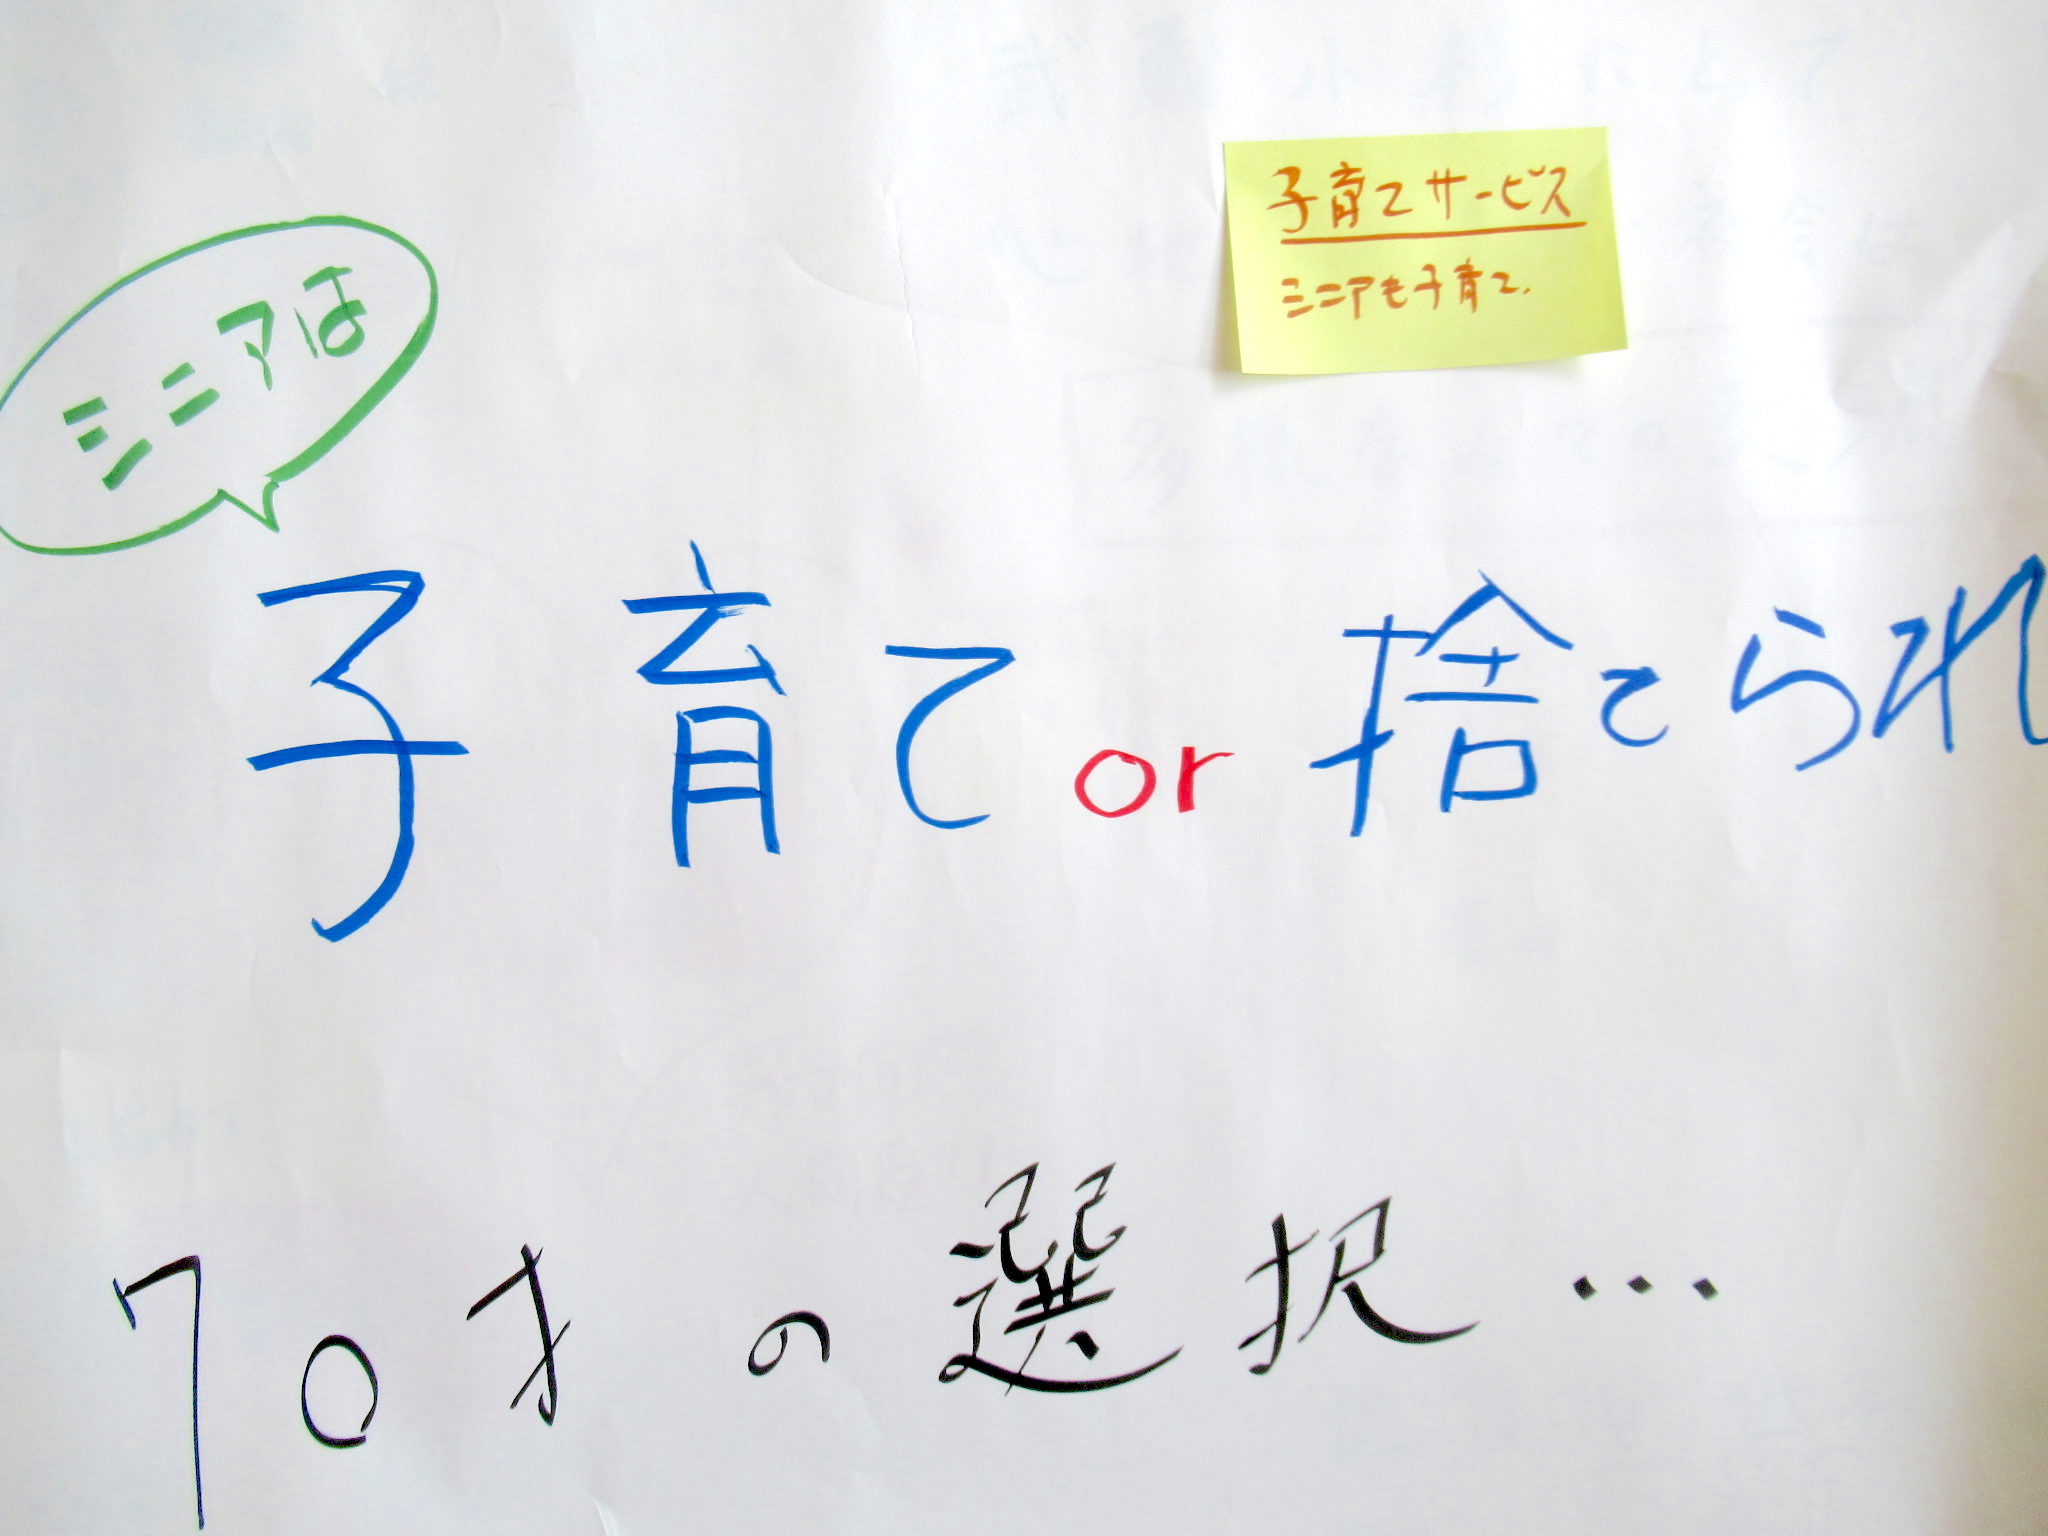 子育てサービス
シニアも子育て.
シニアは
子育て or 捨てられ
70才の選択…